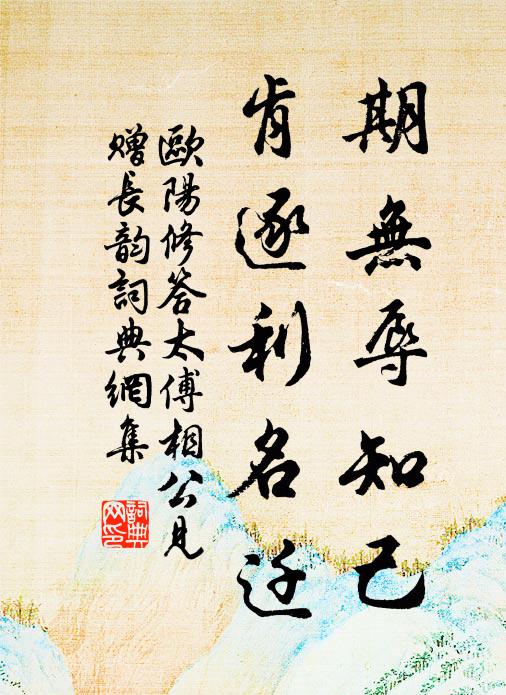 期無辱知己
肯逐利名迁
歐陽修答太傅相公見
赠長韵詞典網集
詞典网印